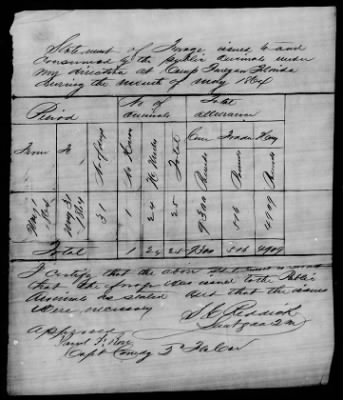 Statement of Forage issued to and
Consumed by the public animals under
my direction at Camp Finegan Florida
during the month of May 1864
Period
No of animals
Total allowance
From
To
No of days
No Horses
No Mules
Total
Corn Pounds
Fodder Pounds
Hay Pounds
May 1 1864
May 31 1864
31
1
24
25
9300
516
4909
Total
1
24
25
9300
516
4909
I certify that the above statement is correct
that the forage was issued to the Public
Animals as stated and that the issues
were necessary
Reddick
Approved
Capt Comdg